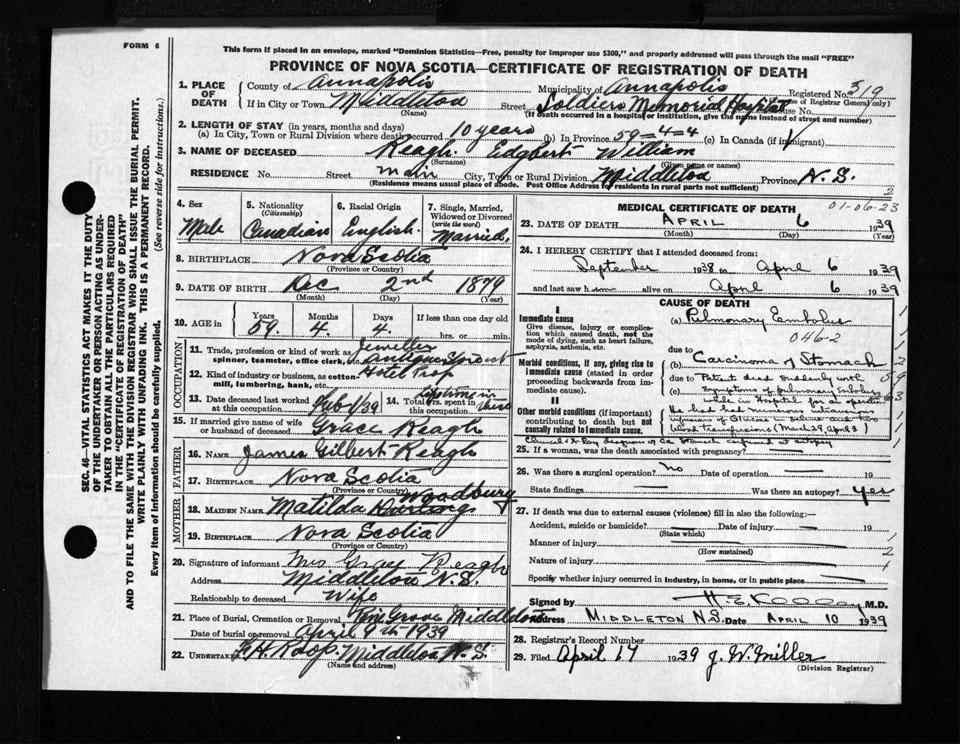 FORM 6
This form if placed in an envelope, marked "Dominion Statistics—Free, penalty for improper use $300," and properly addressed will pass through the mail "FREE"
PROVINCE OF NOVA SCOTIA—CERTIFICATE OF REGISTRATION OF DEATH
1. PLACE OF DEATH County of Annapolis Municipality of Annapolis Registered No. 519
If in City or Town Middleton Street Soldiers Memorial Hospital House No. (Use of Registrar General only)
(Name) (If death occurred in a hospital or institution, give the name instead of street and number)
2. LENGTH OF STAY (in years, months and days)
(a) In City, Town or Rural Division where death occurred 10 years (b) In Province 59=4=4 (c) In Canada (if immigrant)
3. NAME OF DECEASED Reagh Edgbert William
(Surname) (Given name or names)
RESIDENCE No. Street Main City, Town or Rural Division Middleton Province N.S.
(Residence means usual place of abode. Post Office Address for residents in rural parts not sufficient) 2
4. Sex Male
5. Nationality (Citizenship) Canadian
6. Racial Origin English
7. Single, Married, Widowed or Divorced (write the word) Married
8. BIRTHPLACE Nova Scotia
(Province or Country)
9. DATE OF BIRTH Dec 2nd 1879
(Month) (Day) (Year)
10. AGE in Years 59 Months 4 Days 4 If less than one day hrs. or min.
OCCUPATION
11. Trade, profession or kind of work as Jeweller
spinner, teamster, office clerk, etc.
12. Kind of industry or business, as cotton-mill, lumbering, bank, etc. Hotel Prop
13. Date deceased last worked at this occupation Feb 1/39
14. Total yrs. spent in this occupation
15. If married give name of wife or husband of deceased Grace Reagh
FATHER
16. NAME James Gilbert Reagh
17. BIRTHPLACE Nova Scotia
(Province or Country)
MOTHER
18. MAIDEN NAME Matilda Woodbury
19. BIRTHPLACE Nova Scotia
(Province or Country)
20. Signature of informant Mrs Grace Reagh
Address Middleton N.S.
Relationship to deceased Wife
21. Place of Burial, Cremation or Removal Pine Grove Middleton
Date of burial or removal April 9th 1939
22. Undertaker Middleton N.S.
(Name and address)
MEDICAL CERTIFICATE OF DEATH 01-06-23
23. DATE OF DEATH APRIL 6 1939
(Month) (Day) (Year)
24. I HEREBY CERTIFY that I attended deceased from:
September 1938 to April 6 1939
and last saw him alive on April 6 1939
CAUSE OF DEATH
I
Immediate cause
Give disease, injury or complication which caused death, not the mode of dying, such as heart failure, asphyxia, asthenia, etc.
(a) Pulmonary Embolus
046-2
due to
Morbid conditions, if any, giving rise to immediate cause (stated in order proceeding backwards from immediate cause).
(b) Carcinoma of Stomach
due to Patient died suddenly with
symptoms of pulmonary embolus
while in Hospital
II
Other morbid conditions (if important) contributing to death but not causally related to immediate cause.
He had had numerous intravenous
infusions of Glucose in saline and two
blood transfusions (March 29, April 3)
Clinical & X Ray diagnosis of Ca Stomach confirmed at autopsy
25. If a woman, was the death associated with pregnancy?
26. Was there a surgical operation? No Date of operation 19
State findings Was there an autopsy? Yes
27. If death was due to external causes (violence) fill in also the following:—
Accident, suicide or homicide? Date of injury 19
(State which)
Manner of injury
(How sustained)
Nature of injury
Specify whether injury occurred in industry, in home, or in public place
Signed by M.D.
Address MIDDLETON N.S. Date APRIL 10 1939
28. Registrar's Record Number
29. Filed April 17 1939 J. W. Miller
(Division Registrar)
SEC. 46—VITAL STATISTICS ACT MAKES IT THE DUTY
OF THE UNDERTAKER OR PERSON ACTING AS UNDERTAKER
TO OBTAIN ALL THE PARTICULARS REQUIRED
IN THE "CERTIFICATE OF REGISTRATION OF DEATH"
AND TO FILE THE SAME WITH THE DIVISION REGISTRAR WHO SHALL ISSUE THE BURIAL PERMIT.
WRITE PLAINLY WITH UNFADING INK. THIS IS A PERMANENT RECORD.
Every item of Information should be carefully supplied. (See reverse side for instructions.)